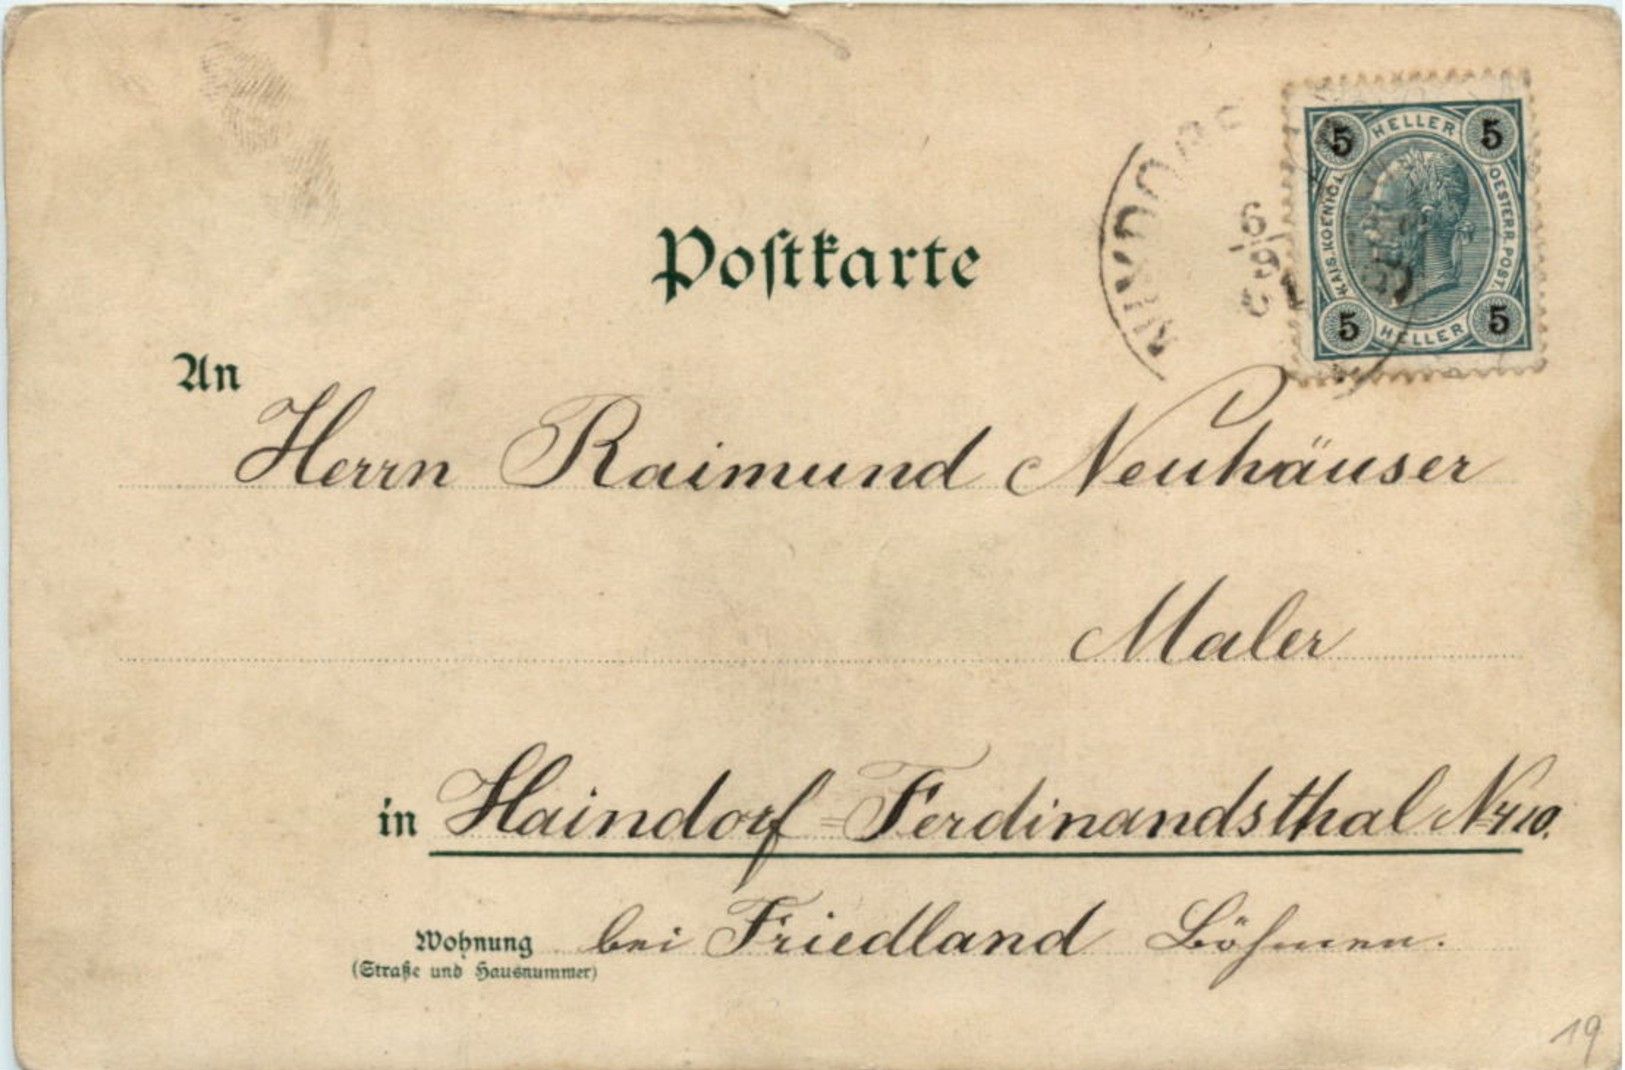 Postkarte
5 HELLER 5
KAIS. KOENIGL. OESTERR. POST.
5 HELLER 5
6
An
Herrn Raimund Neuhäuser
Maler
in Haindorf = Ferdinandsthal
bei Friedland Böhmen.
Wohnung
(Straße und Hausnummer)
19